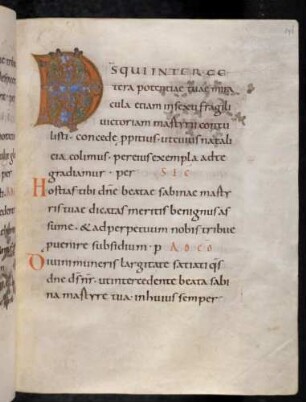 DSQUIINTERCE
tera potentiae tuae mira
cula etiam insexu fragili
uictoriam martyrii contu
listi · concede ppitius · ut cuius natali
cia colimus · per eius exempla ad te
gradiamur · per SÌC
Hostias tibi dne beatae sabinae marty
ris tuae dicatas meritis benignus as
sume · & ad perpetuum nobis tribue
puenire subsidium · p ADCO
Diuini muneris largitate satiati qs
dne ds nr · ut intercedente beata sabi
na martyre tua · in huius semper